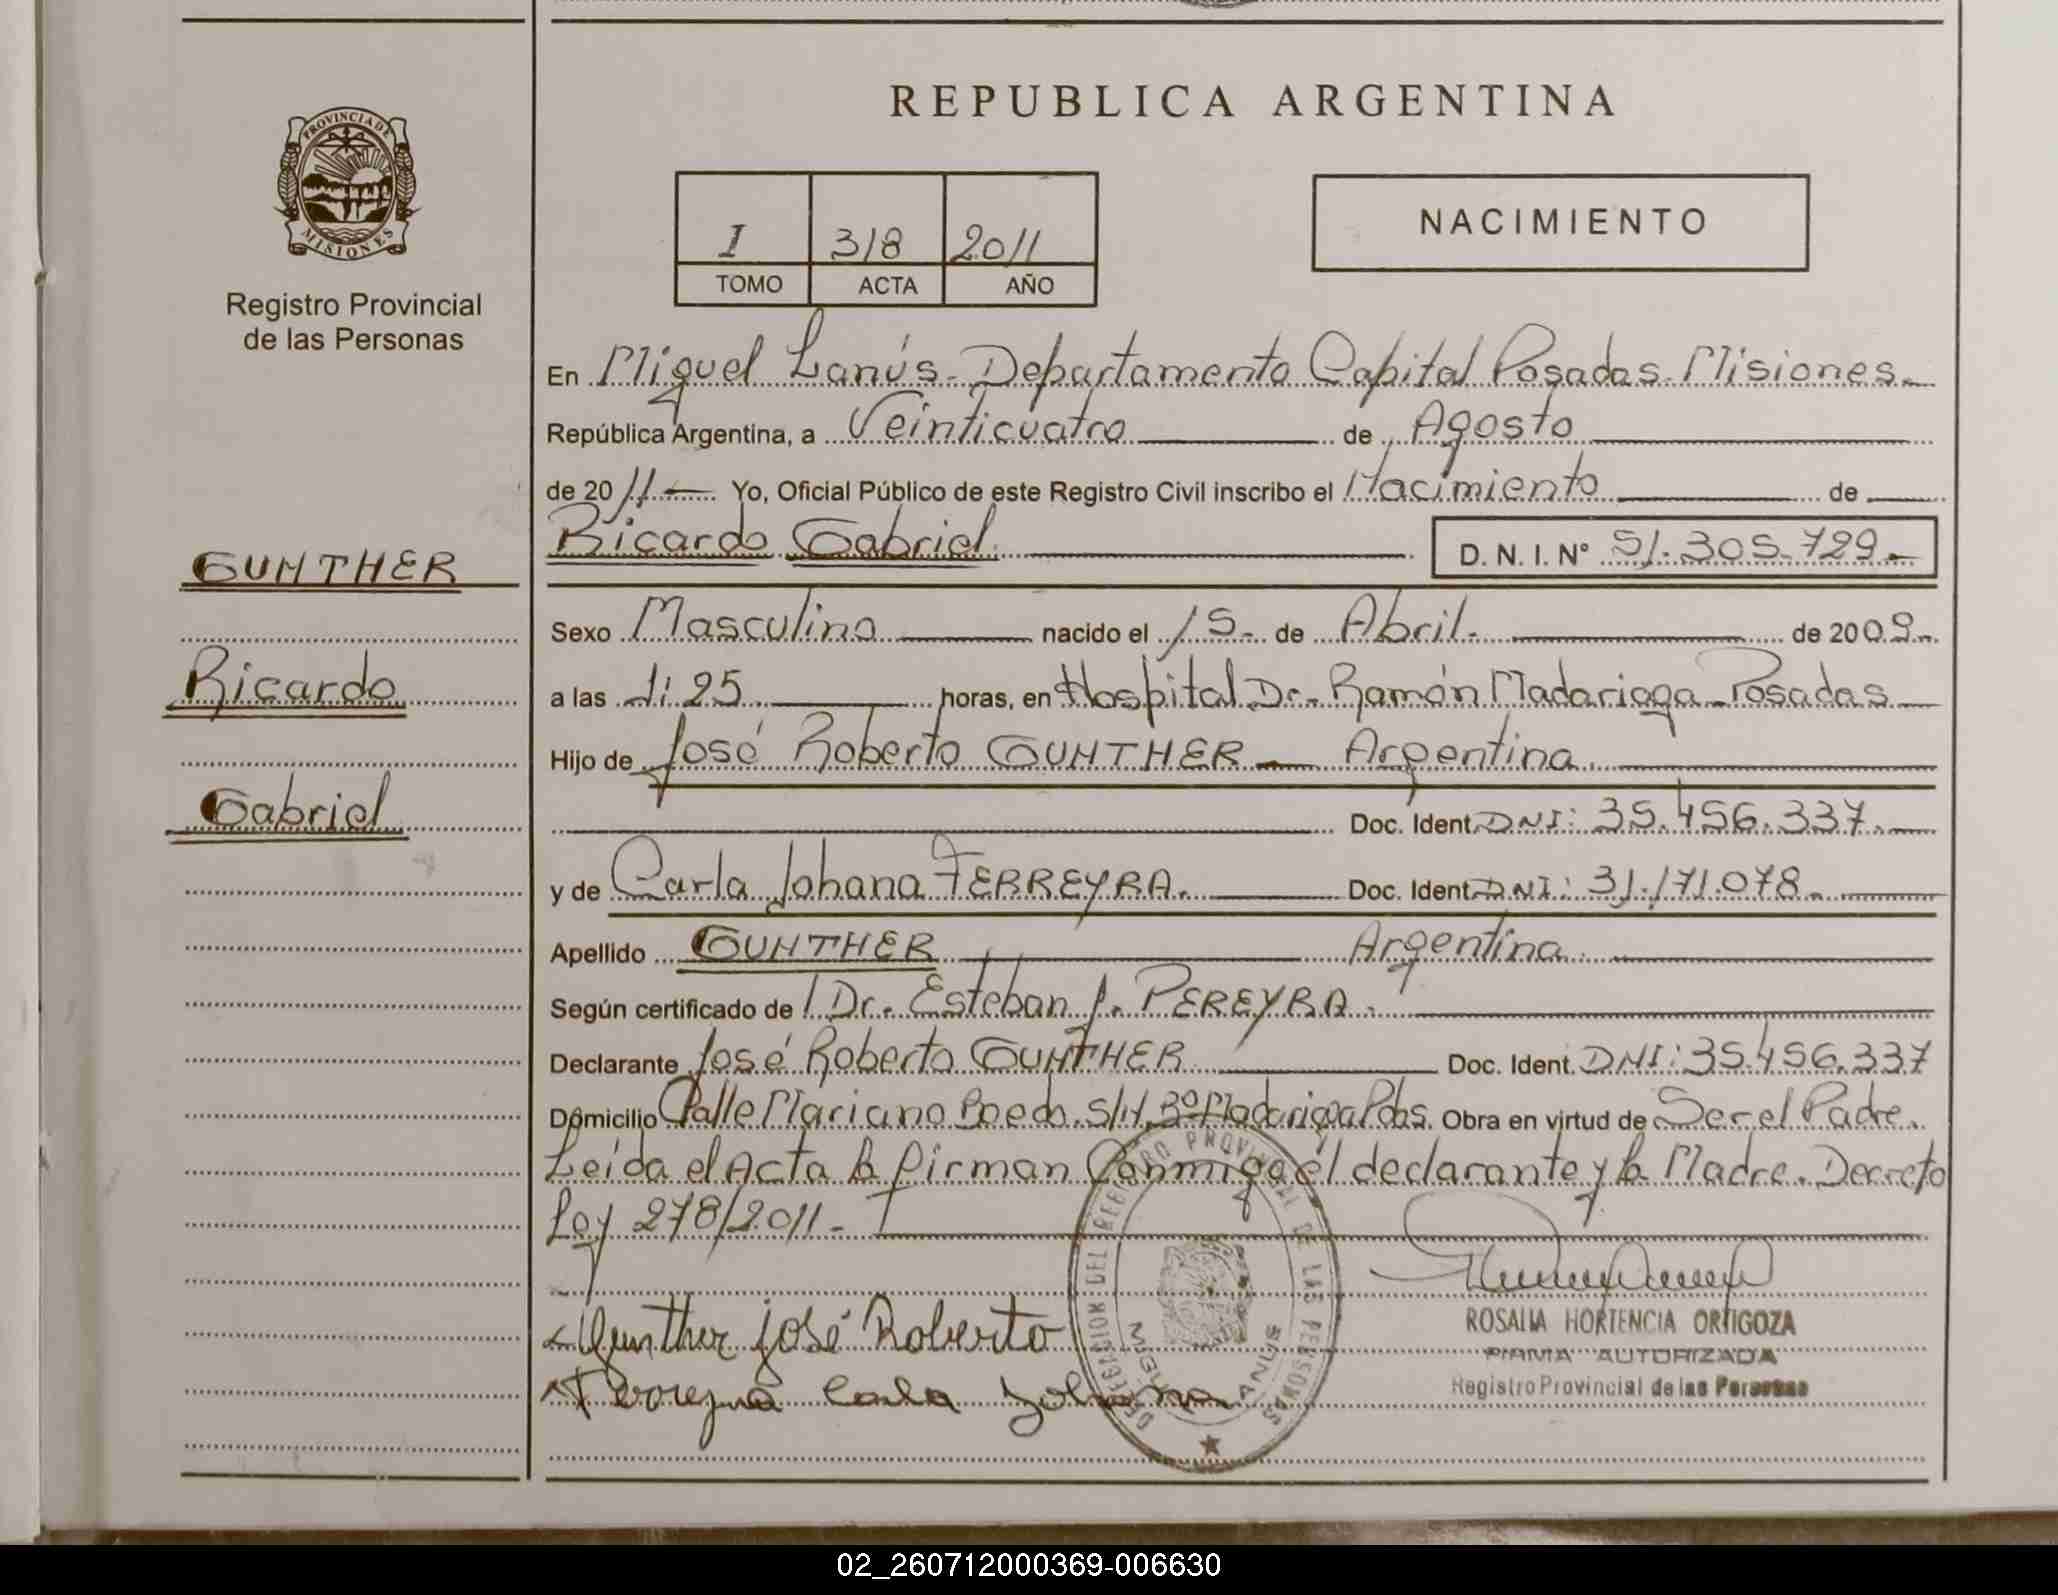 REPUBLICA ARGENTINA
PROVINCIA DE
MISIONES
Registro Provincial
de las Personas
I 318 2011
TOMO ACTA AÑO
NACIMIENTO
En Miguel Lanús - Departamento Capital Posadas - Misiones -
República Argentina, a Veinticuatro de Agosto
de 2011 - Yo, Oficial Público de este Registro Civil inscribo el Nacimiento de
Ricardo Gabriel D. N. I. N° 51.305.729 -
GUNTHER
Ricardo
Gabriel
Sexo Masculino nacido el 15 - de Abril - de 2009 -
a las 1:25 horas, en Hospital Dr. Ramón Madariaga - Posadas
Hijo de José Roberto GUNTHER - Argentina
Doc. Ident. DNI: 35.456.337 -
y de Carla Johana FERREYRA. Doc. Ident. DNI: 31.171.078 -
Apellido GUNTHER Argentina
Según certificado de Dr. Esteban J. PEREYRA.
Declarante José Roberto GUNTHER Doc. Ident. DNI: 35.456.337
Domicilio Calle Mariano Boedo S/N, Bº Madariaga Pdas. Obra en virtud de Ser el Padre.
Leída el Acta la firman Conmigo él declarante y la Madre. Decreto
Ley 278/2011 -
Gunther José Roberto
Ferreyra Carla Johana
DELEGACION DEL REGISTRO PROVINCIAL DE LAS PERSONAS
MIGUEL LANUS
ROSALIA HORTENCIA ORTIGOZA
FIRMA AUTORIZADA
Registro Provincial de las Personas
02_260712000369-006630